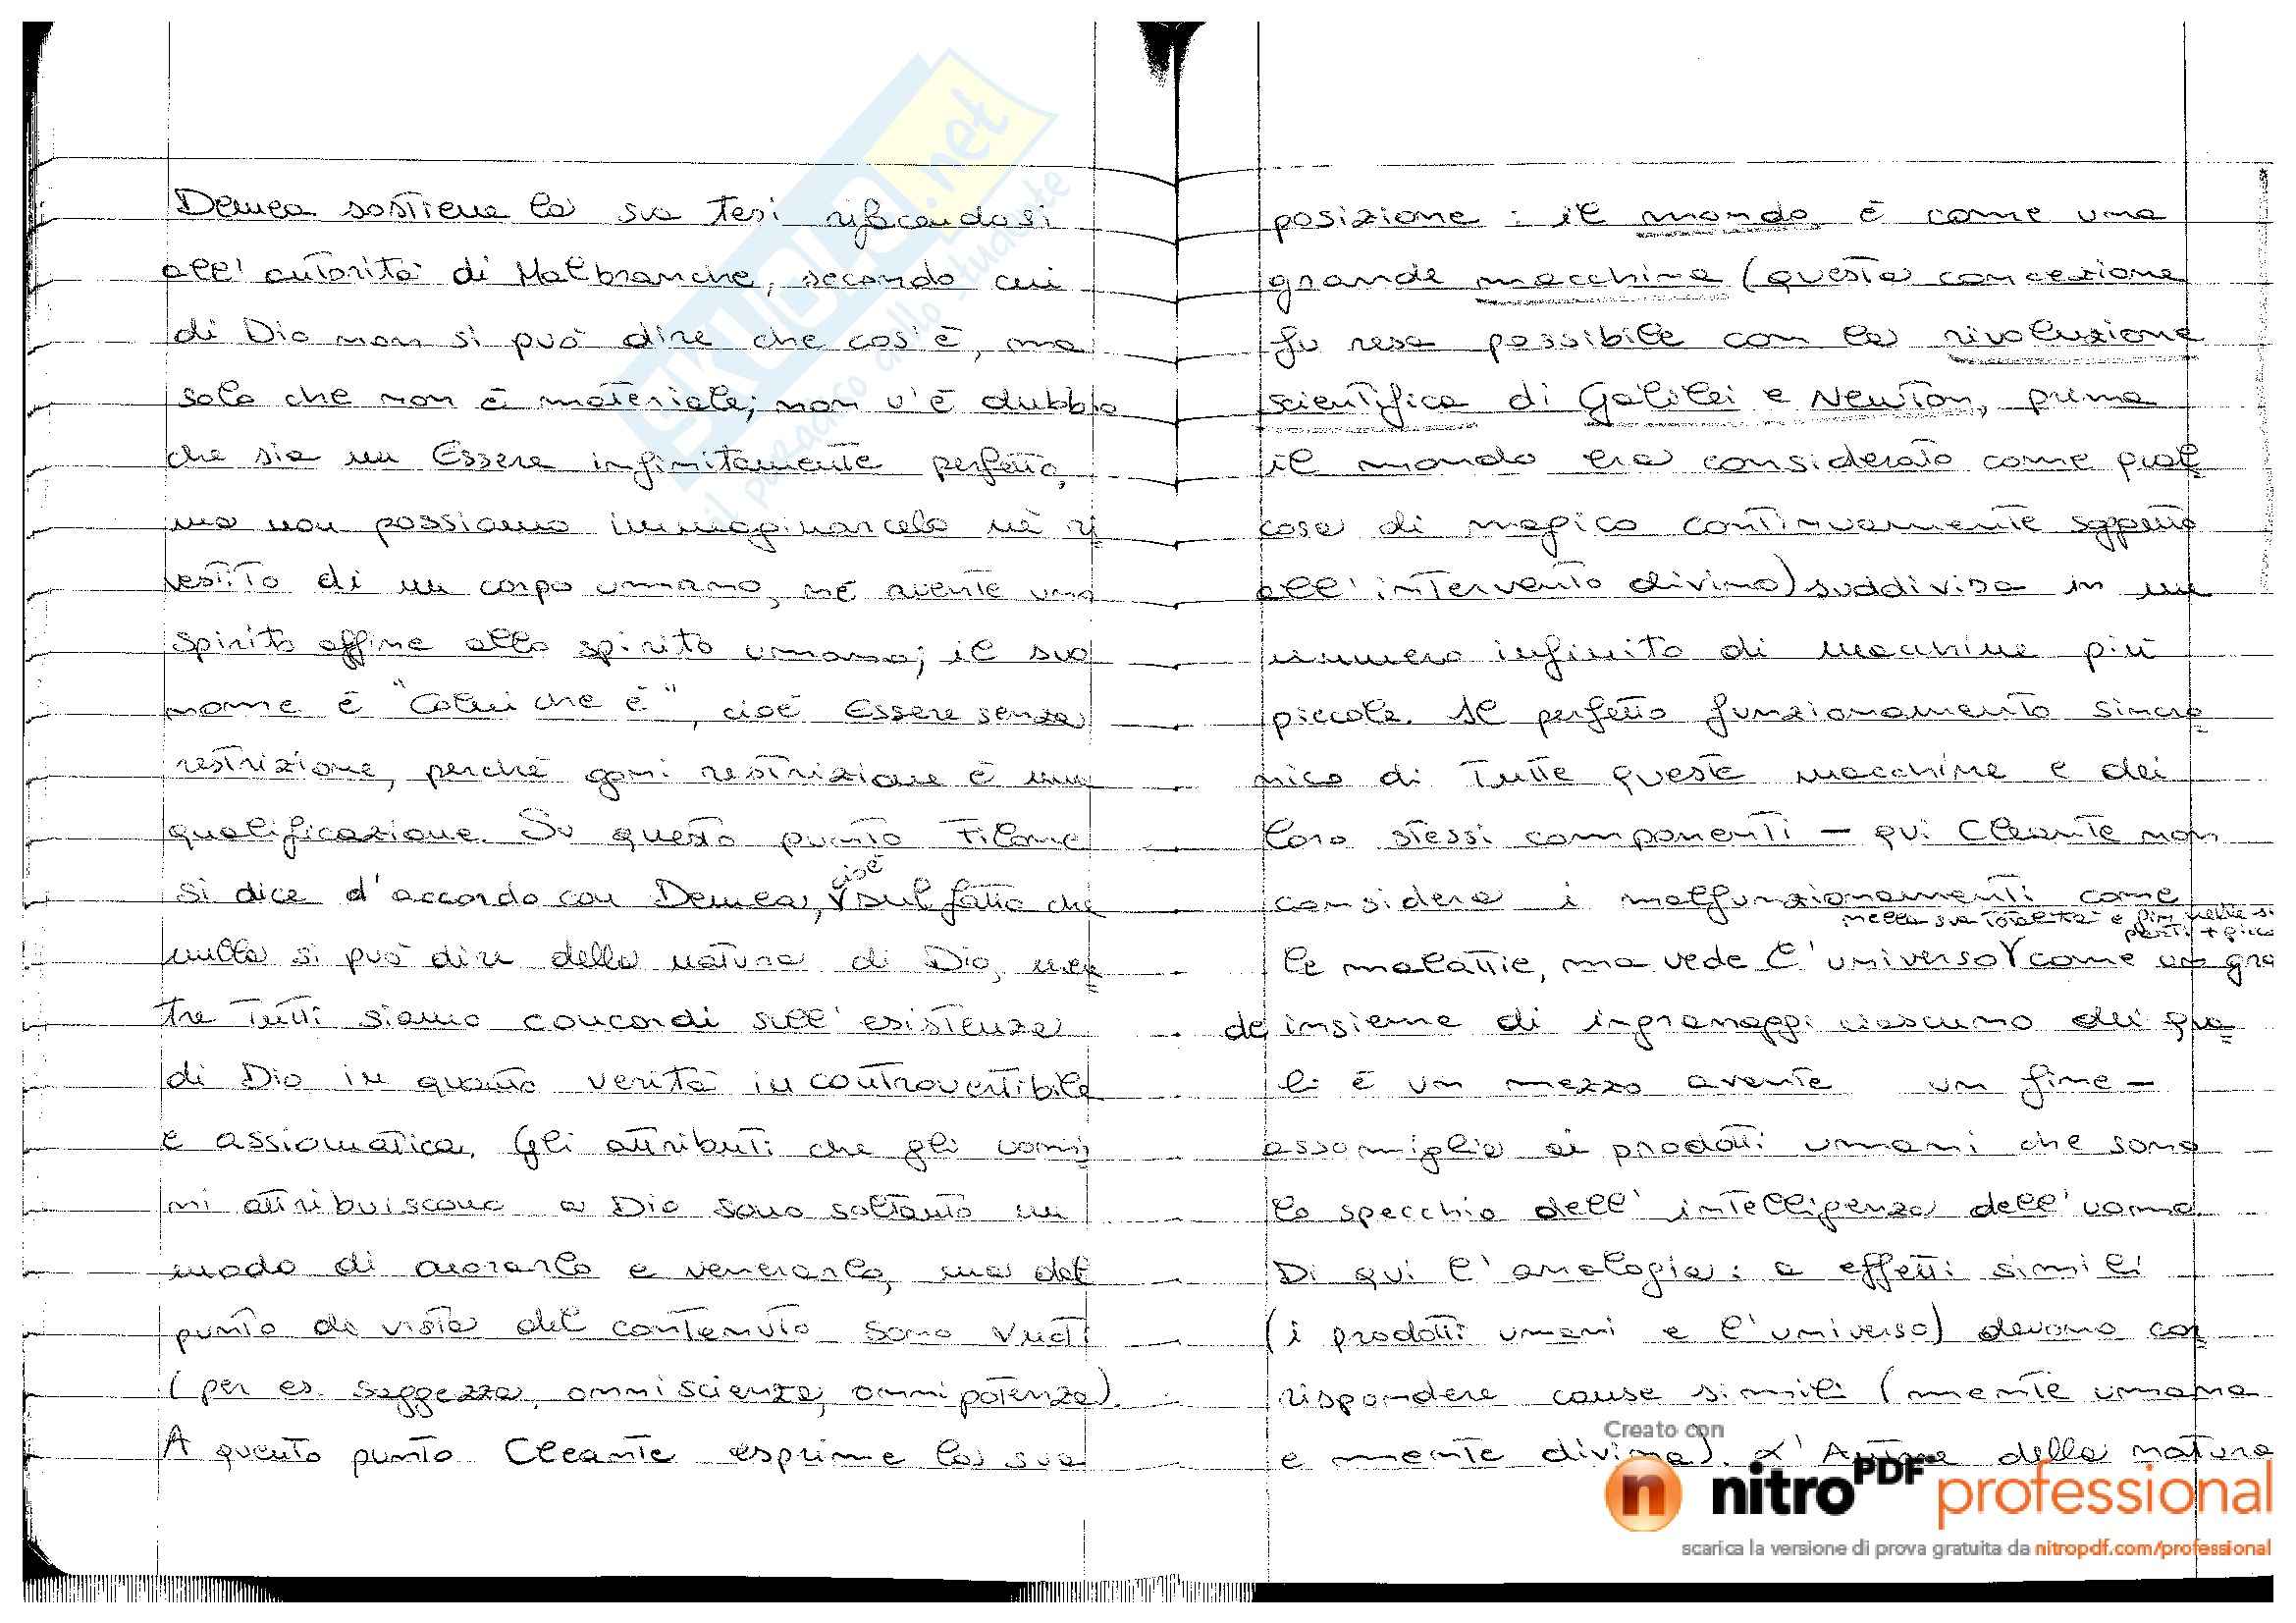 Demea sostiene la sua tesi rifacendosi
all'autorità di Malbranche, secondo cui
di Dio non si può dire che cos'è, ma
solo che non è materiale; non v'è dubbio
che sia un Essere infinitamente perfetto,
ma non possiamo immaginarcelo nè ri
vestito di un corpo umano, nè avente uno
spirito affine allo spirito umano; il suo
nome è "Colui che è", cioè Essere senza
restrizione, perchè ogni restrizione è una
qualificazione. Su questo punto Filone
si dice d'accordo con Demea, cioè sul fatto che
nulla si può dire della natura di Dio, men
tre tutti siamo concordi sull'esistenza
di Dio in quanto verità incontrovertibile
e assiomatica. Gli attributi che gli uomi
ni attribuiscono a Dio sono soltanto un
modo di onorarlo e venerarlo, ma dal
punto di vista del contenuto sono vuoti
(per es. saggezza, omniscienza, omnipotenza).
A questo punto Cleante esprime la sua
posizione: il mondo è come una
grande macchina (questa concezione
fu resa possibile con la rivoluzione
scientifica di Galilei e Newton, prima
il mondo era considerato come qual
cosa di magico continuamente soggetto
all'intervento divino) suddivisa in un
numero infinito di macchine più
piccole. Il perfetto funzionamento sincro
nico di tutte queste macchine e dei
loro stessi componenti – qui Cleante non
considera i malfunzionamenti come
nella sua totalità e fin nelle
parti + picco
le malattie, ma vede l'universo come un gra
de insieme di ingranaggi ciascuno dei qua
li è un mezzo avente un fine –
assomiglia ai prodotti umani che sono
lo specchio dell'intelligenza dell'uomo.
Di qui l'analogia: a effetti simili
(i prodotti umani e l'universo) devono cor
rispondere cause simili (mente umana
e mente divina). L'Autore della natura
SKUOLA.net
il paradiso allo studente
Creato con
nitro PDF professional
scarica la versione di prova gratuita da nitropdf.com/professional